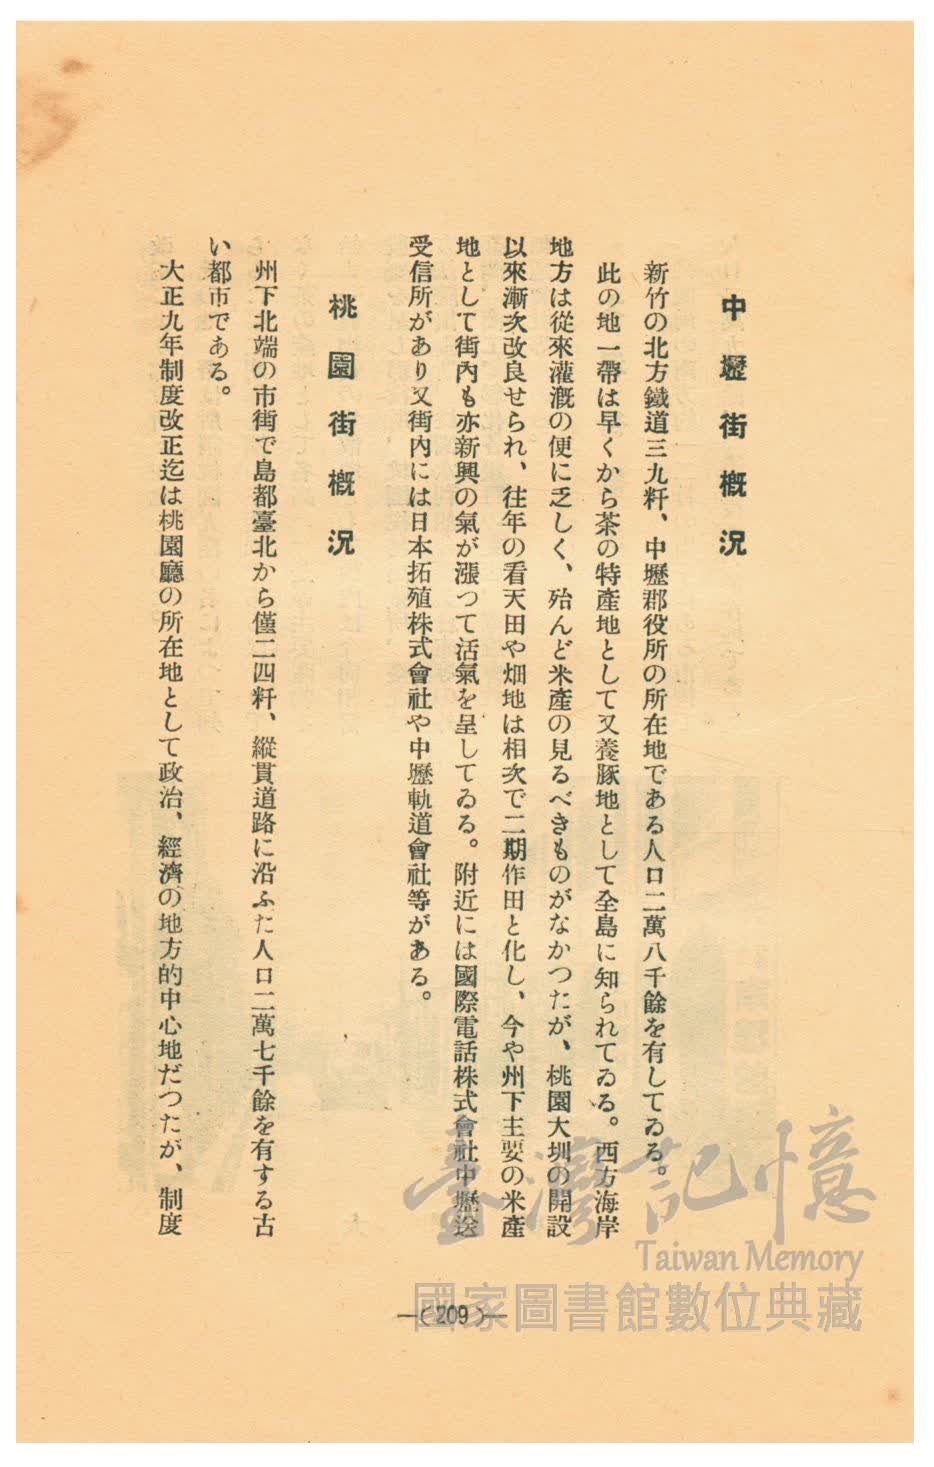 中壢街概況
新竹の北方鐵道三九粁、中壢郡役所の所在地である人口二萬八千餘を有してゐる。
此の地一帶は早くから茶の特產地として又養豚地として全島に知られてゐる。西方海岸
地方は從來灌漑の便に乏しく、殆んど米產の見るべきものがなかつたが、桃園大圳の開設
以來漸次改良せられ、往年の看天田や畑地は相次で二期作田と化し、今や州下主要の米產
地として街內も亦新興の氣が漲つて活氣を呈してゐる。附近には國際電話株式會社中壢送
受信所があり又街內には日本拓殖株式會社や中壢軌道會社等がある。
桃園街概況
州下北端の市街で島都臺北から僅二四粁、縱貫道路に沿ふた人口二萬七千餘を有する古
い都市である。
大正九年制度改正迄は桃園廳の所在地として政治、經濟の地方的中心地だつたが、制度
—(209)—
臺灣記憶
Taiwan Memory
國家圖書館數位典藏